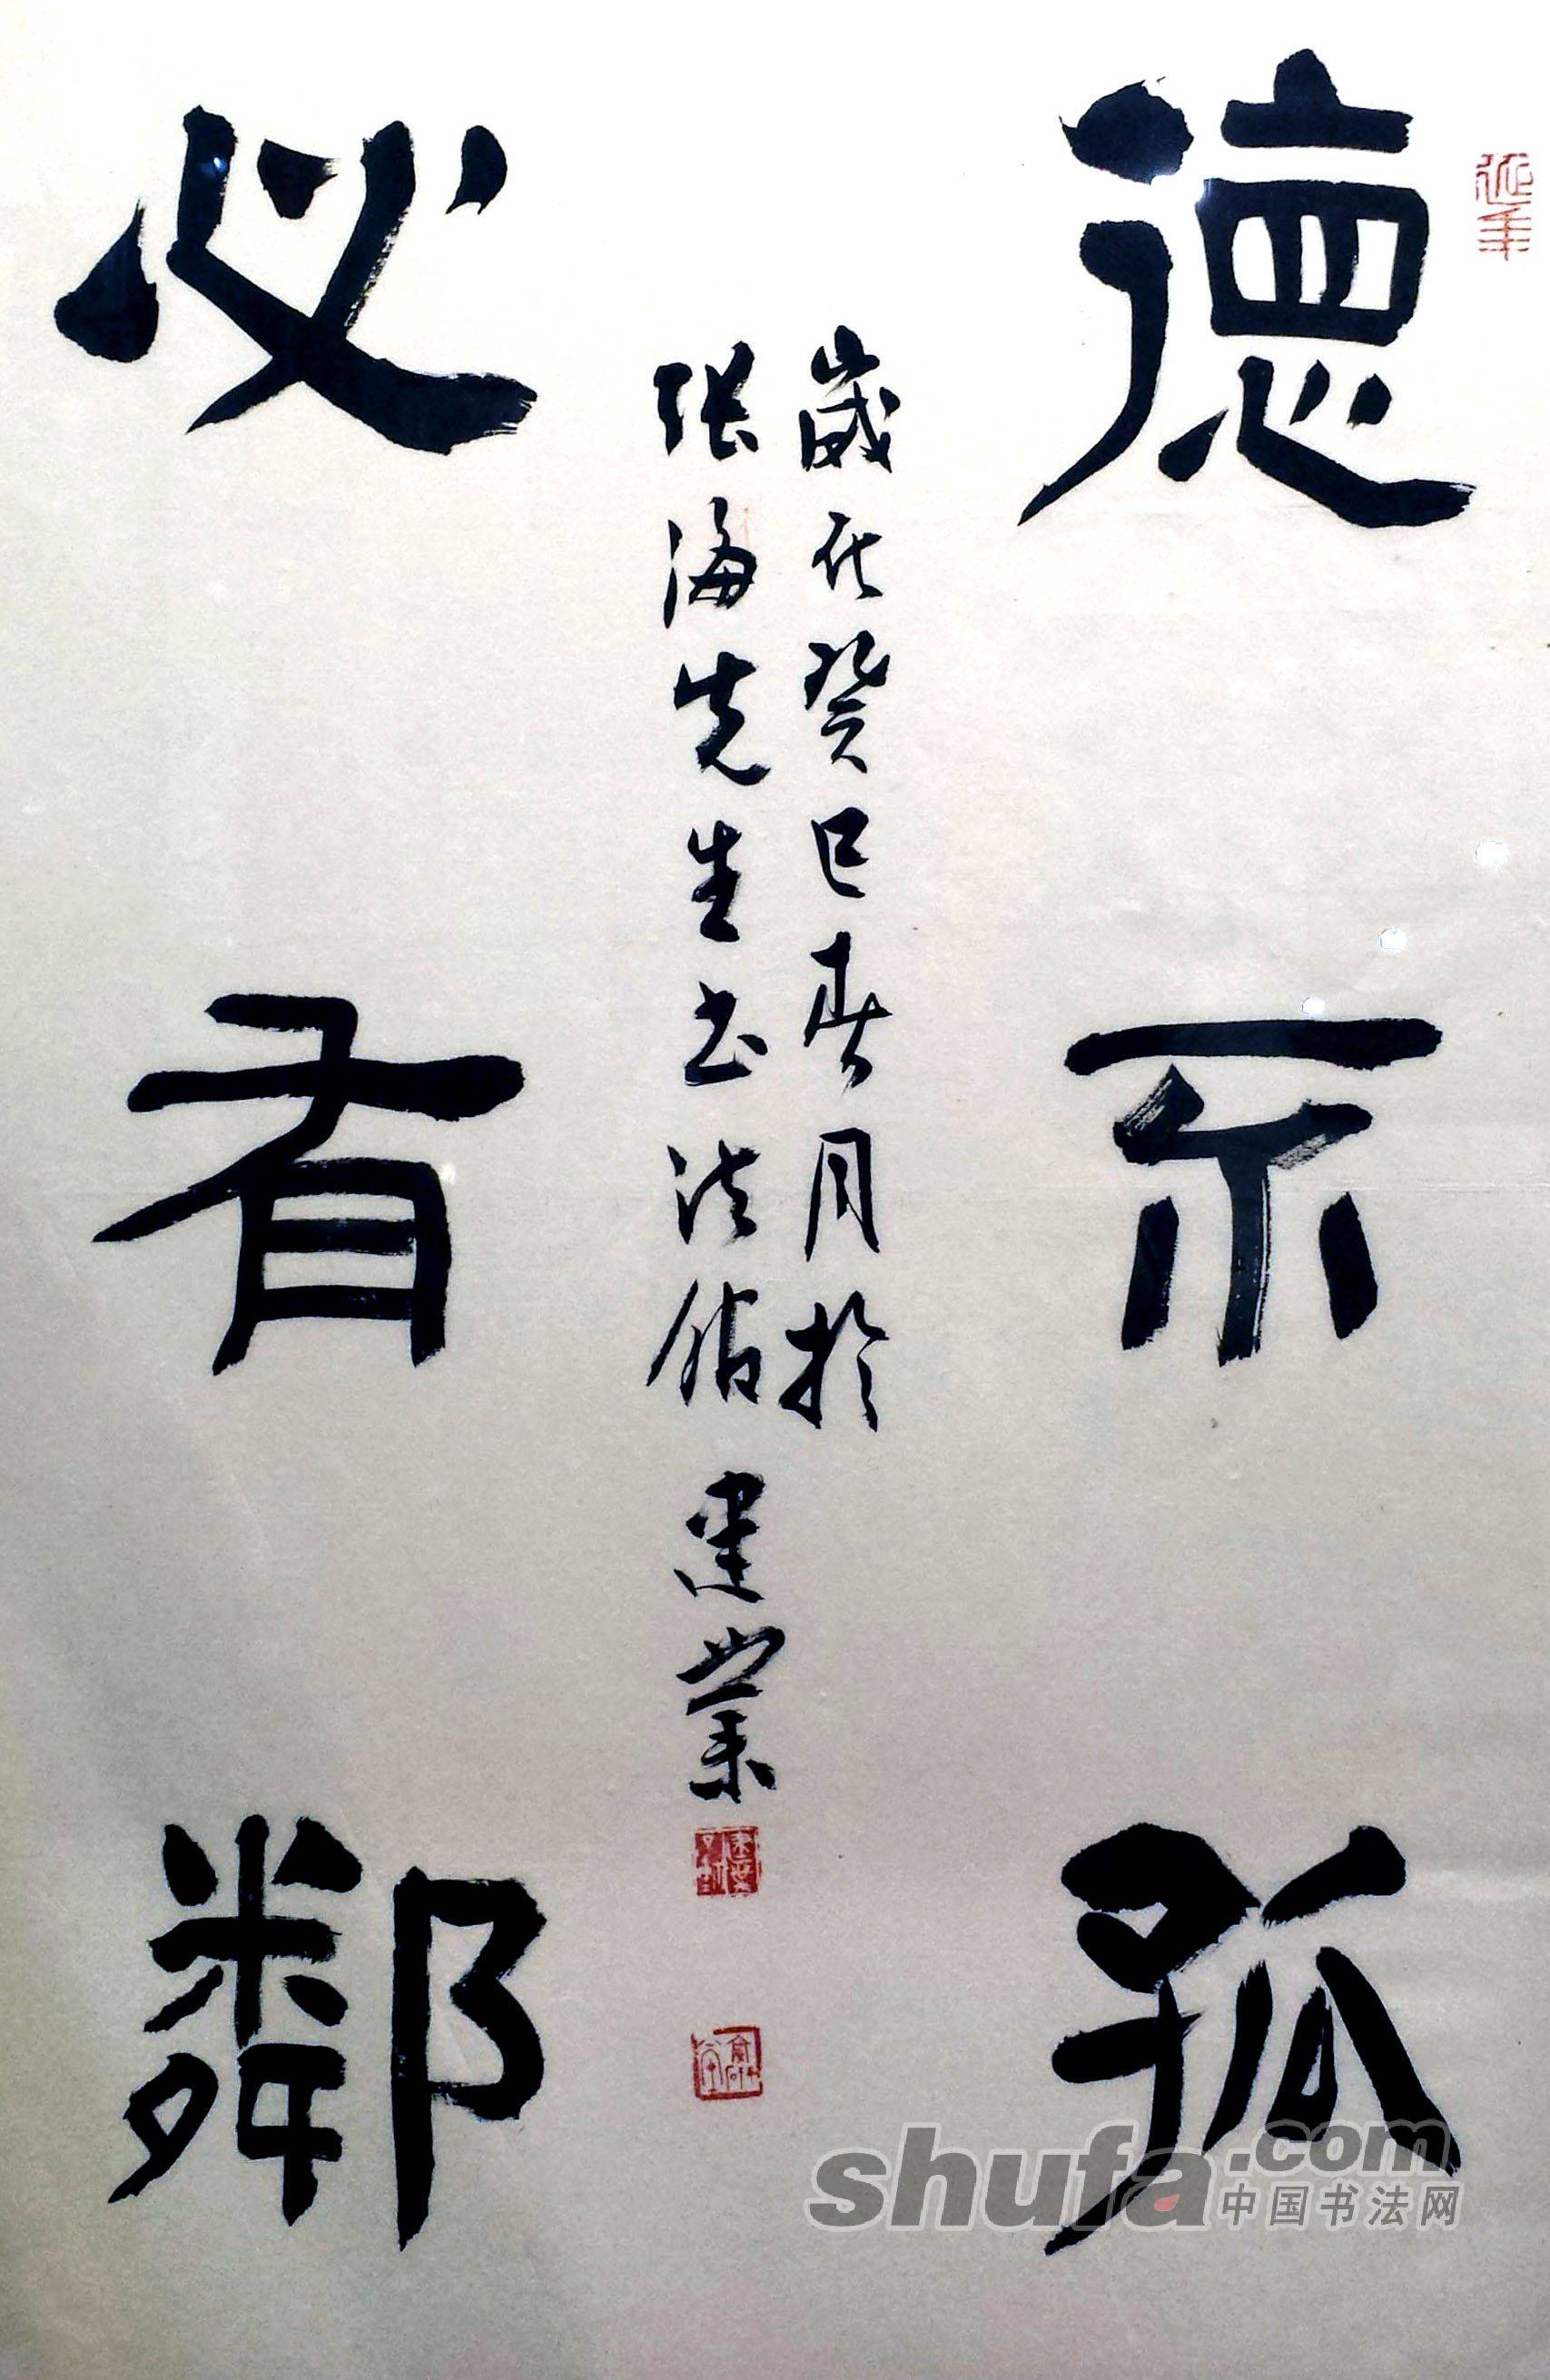 德不孤
歲在癸巳春月於
張海先生書法館 建業
必有鄰
延年
shufa.com
中国书法网